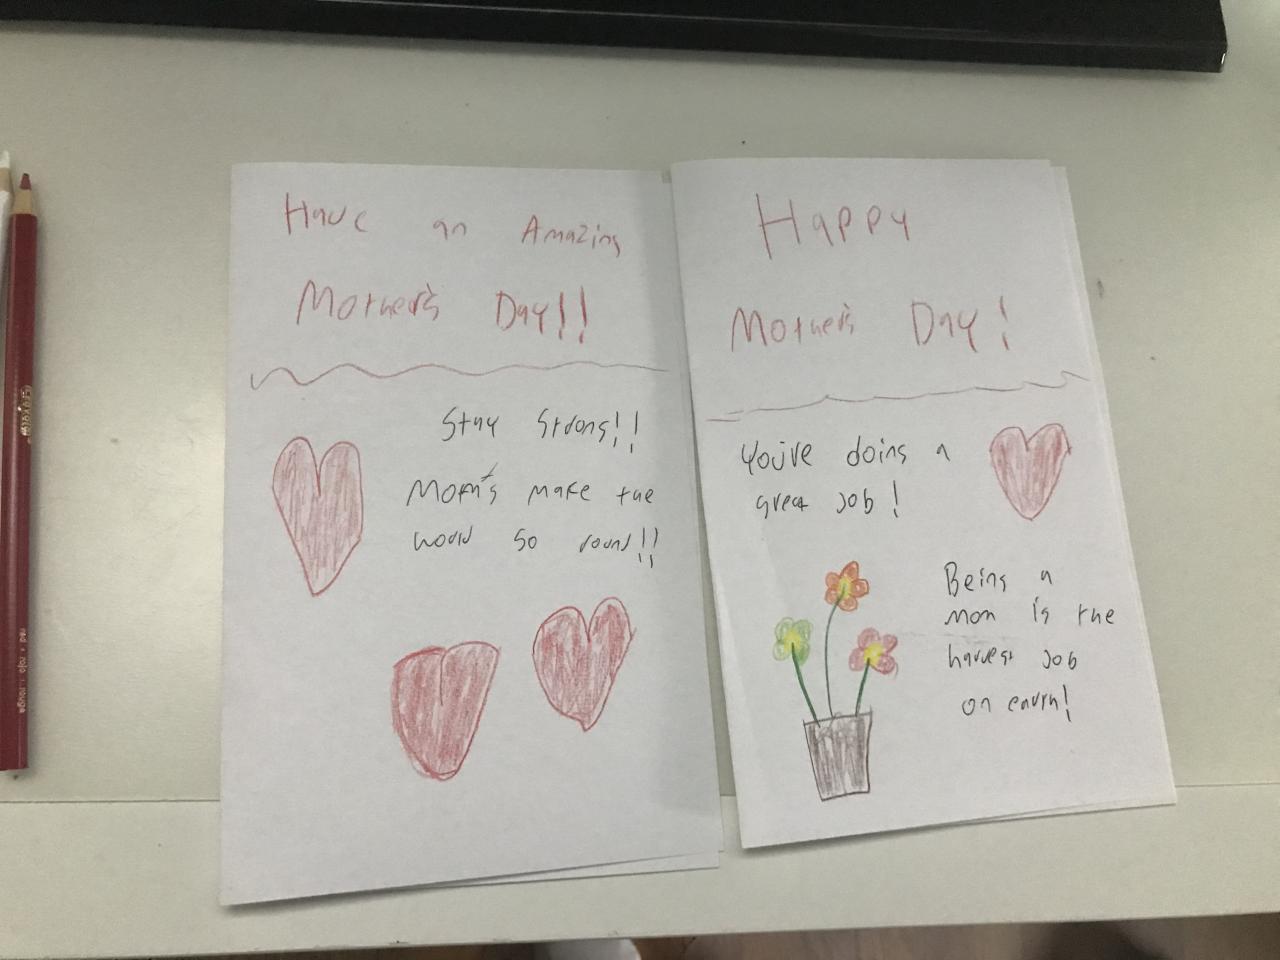 Have an Amazing
Mother's Day!!
Stay Strong!!
Mom's make the
world go round!!
Happy
Mother's Day!
You're doing a
great job!
Being a
mom is the
hardest job
on earth!
Crayola
red • rojo • rouge